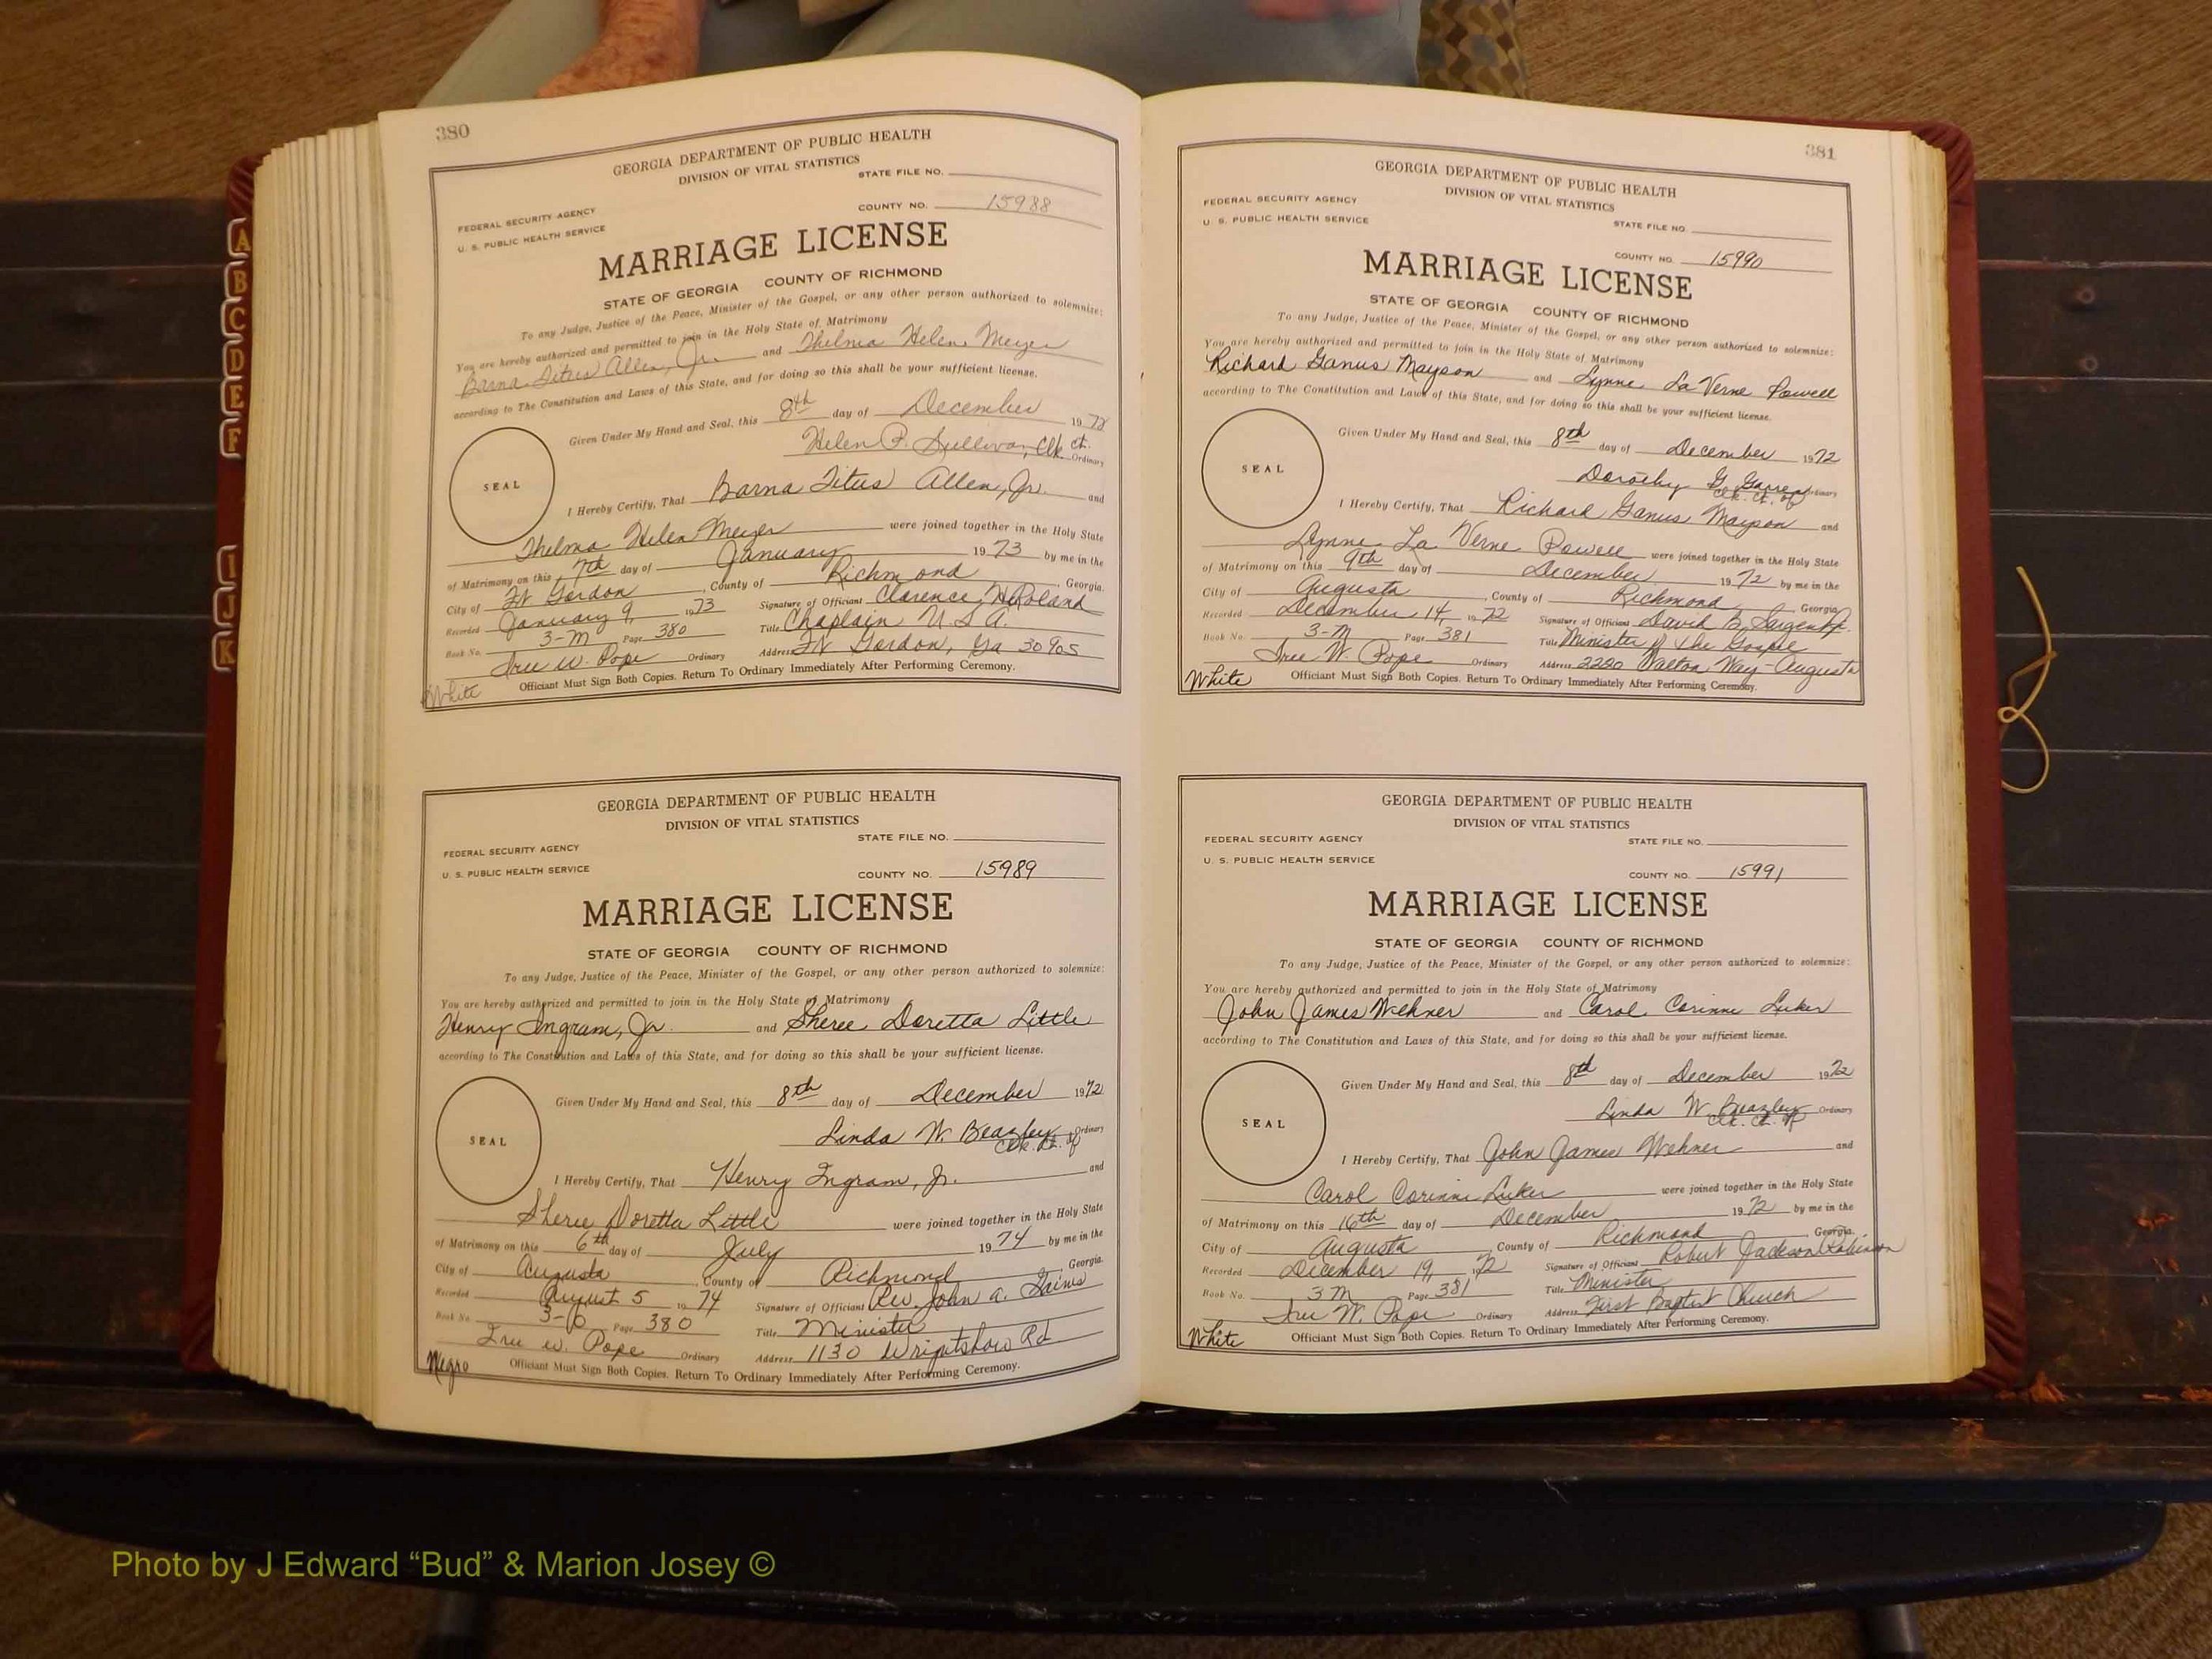 380
GEORGIA DEPARTMENT OF PUBLIC HEALTH
DIVISION OF VITAL STATISTICS
STATE FILE NO.
FEDERAL SECURITY AGENCY
COUNTY NO. 15988
U. S. PUBLIC HEALTH SERVICE
MARRIAGE LICENSE
STATE OF GEORGIA COUNTY OF RICHMOND
To any Judge, Justice of the Peace, Minister of the Gospel, or any other person authorized to solemnize:
You are hereby authorized and permitted to join in the Holy State of Matrimony
Barna Titus Allen, Jr. and Thelma Helen Meyer
according to The Constitution and Laws of this State, and for doing so this shall be your sufficient license.
Given Under My Hand and Seal, this 8th day of December 1972
Helen P. Sullivan, Clk. Ct. Ordinary
SEAL
I Hereby Certify, That Barna Titus Allen, Jr. and
Thelma Helen Meyer were joined together in the Holy State
of Matrimony on this 7th day of January 1973 by me in the
City of Ft Gordon, County of Richmond, Georgia.
Recorded January 9, 1973 Signature of Officiant Clarence Roland
Book No. 3-M Page 380 Title Chaplain U.S.A.
Iree W. Pope Ordinary Address Ft Gordon, Ga 30905
White Officiant Must Sign Both Copies. Return To Ordinary Immediately After Performing Ceremony.
GEORGIA DEPARTMENT OF PUBLIC HEALTH
DIVISION OF VITAL STATISTICS
STATE FILE NO.
FEDERAL SECURITY AGENCY
U. S. PUBLIC HEALTH SERVICE
COUNTY NO. 15989
MARRIAGE LICENSE
STATE OF GEORGIA COUNTY OF RICHMOND
To any Judge, Justice of the Peace, Minister of the Gospel, or any other person authorized to solemnize:
You are hereby authorized and permitted to join in the Holy State of Matrimony
Henry Ingram, Jr. and Sheree Doretta Little
according to The Constitution and Laws of this State, and for doing so this shall be your sufficient license.
Given Under My Hand and Seal, this 8th day of December 1972
Linda W. Beazley Ordinary
Clk. Ct. of
SEAL
I Hereby Certify, That Henry Ingram, Jr. and
Sheree Doretta Little were joined together in the Holy State
of Matrimony on this 6th day of July 1974 by me in the
City of Augusta, County of Richmond, Georgia.
Recorded August 5 1974 Signature of Officiant Rev. John A. Gaines
Book No. Page 380 Title Minister
Iree W. Pope Ordinary Address 1130 Wrightsboro Rd
Negro Officiant Must Sign Both Copies. Return To Ordinary Immediately After Performing Ceremony.
381
GEORGIA DEPARTMENT OF PUBLIC HEALTH
DIVISION OF VITAL STATISTICS
FEDERAL SECURITY AGENCY
U. S. PUBLIC HEALTH SERVICE
STATE FILE NO.
COUNTY NO. 15990
MARRIAGE LICENSE
STATE OF GEORGIA COUNTY OF RICHMOND
To any Judge, Justice of the Peace, Minister of the Gospel, or any other person authorized to solemnize:
You are hereby authorized and permitted to join in the Holy State of Matrimony
Richard Ganus Mayson and Lynne La Verne Powell
according to The Constitution and Laws of this State, and for doing so this shall be your sufficient license.
Given Under My Hand and Seal, this 8th day of December 1972
Dorothy G. Ordinary
Clk. Ct. of
SEAL
I Hereby Certify, That Richard Ganus Mayson and
Lynne La Verne Powell were joined together in the Holy State
of Matrimony on this 9th day of December 1972 by me in the
City of Augusta, County of Richmond, Georgia.
Recorded December 14, 1972 Signature of Officiant David B.
Book No. 3-M Page 381 Title Minister of the Gospel
Iree W. Pope Ordinary Address 2220 Walton Way-Augusta
White Officiant Must Sign Both Copies. Return To Ordinary Immediately After Performing Ceremony.
GEORGIA DEPARTMENT OF PUBLIC HEALTH
DIVISION OF VITAL STATISTICS
FEDERAL SECURITY AGENCY
STATE FILE NO.
U. S. PUBLIC HEALTH SERVICE
COUNTY NO. 15991
MARRIAGE LICENSE
STATE OF GEORGIA COUNTY OF RICHMOND
To any Judge, Justice of the Peace, Minister of the Gospel, or any other person authorized to solemnize:
You are hereby authorized and permitted to join in the Holy State of Matrimony
John James Wehner and Carol Corinne Luker
according to The Constitution and Laws of this State, and for doing so this shall be your sufficient license.
Given Under My Hand and Seal, this 8th day of December 1972
Linda W. Beazley Ordinary
Clk. Ct. of
SEAL
I Hereby Certify, That John James Wehner and
Carol Corinne Luker were joined together in the Holy State
of Matrimony on this 16th day of December 1972 by me in the
City of Augusta, County of Richmond Georgia.
Recorded December 19, 1972 Signature of Officiant Robert Jackson Robinson
Book No. 3M Page 381 Title Minister
Iree W. Pope Ordinary Address First Baptist Church
White Officiant Must Sign Both Copies. Return To Ordinary Immediately After Performing Ceremony.
A
B
C
D
E
F
I
J
K
Photo by J Edward “Bud” & Marion Josey ©